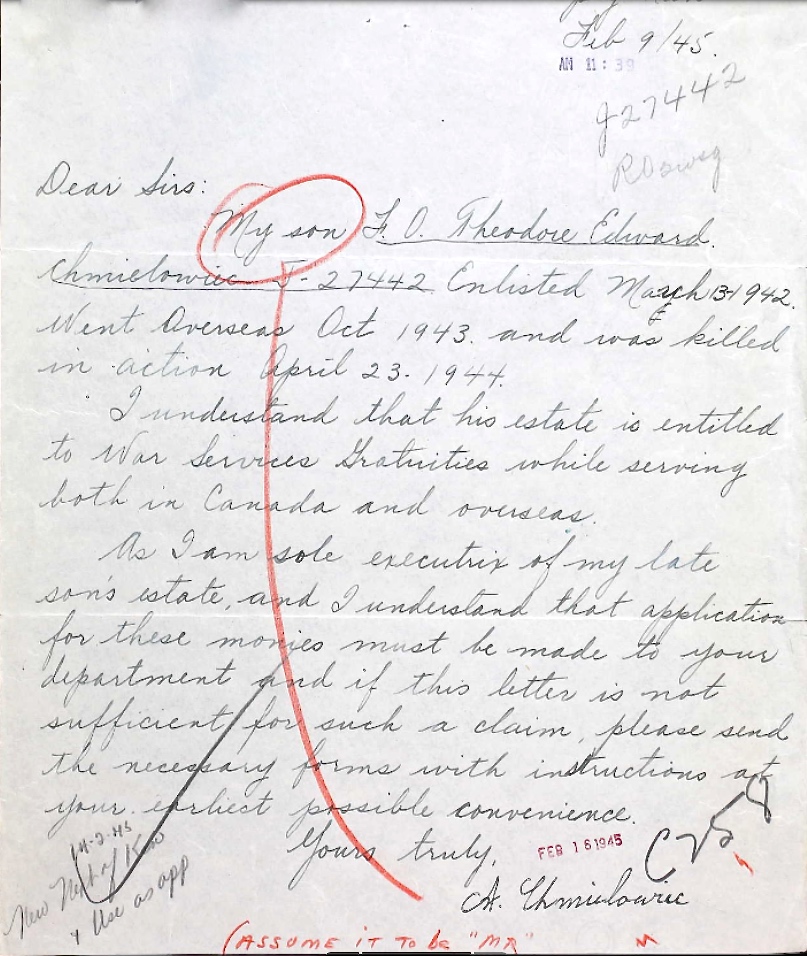 Feb 9/45.
AM 11:39
J27442
Dear Sirs:
My son F. O. Theodore Edward.
Chmielowiec J-27442. Enlisted March 13-1942.
Went Overseas Oct 1943. and was killed
in action April 23. 1944.
I understand that his estate is entitled
to War Services Gratuities while serving
both in Canada and overseas.
As I am sole executrix of my late
son's estate, and I understand that application
for these monies must be made to your
department and if this letter is not
sufficient for such a claim, please send
the necessary forms with instructions at
your earliect possible convenience.
Yours truly,
FEB 16 1945
A. Chmielowiec
14-2-45
New Next of Kin
+ Use as app
(ASSUME IT TO be "MR"